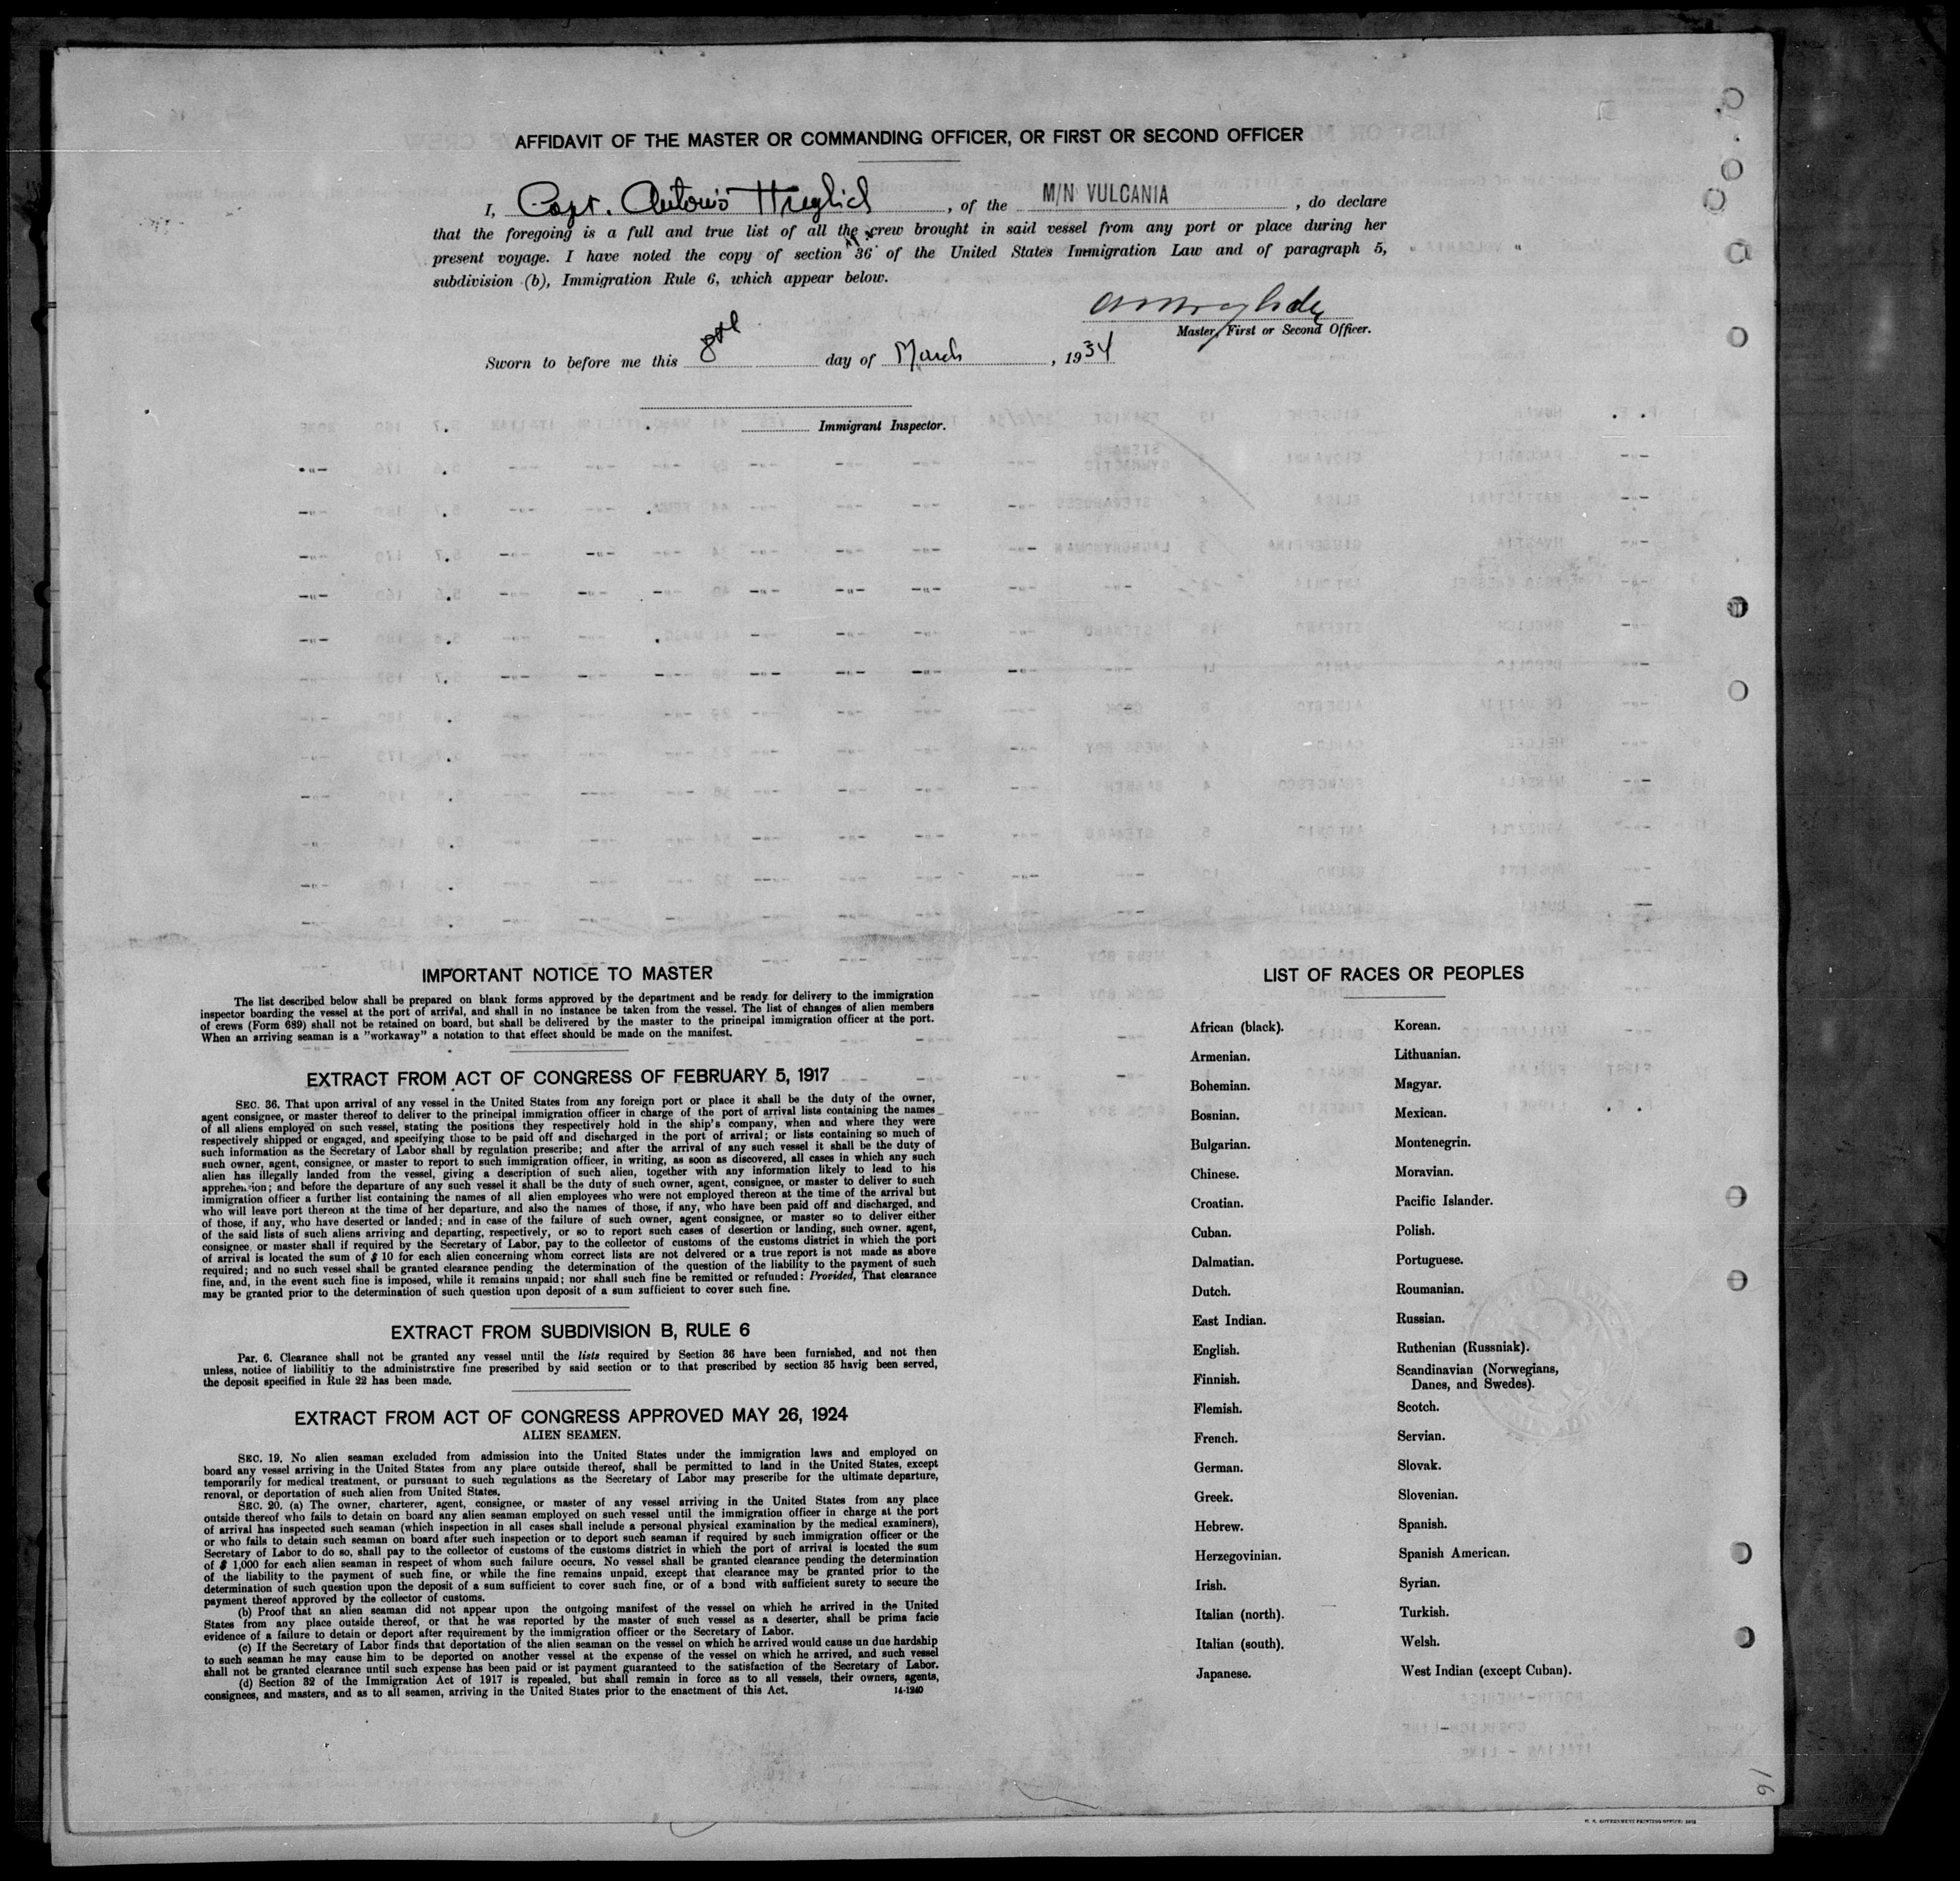 AFFIDAVIT OF THE MASTER OR COMMANDING OFFICER, OR FIRST OR SECOND OFFICER
I, Capt. Antonio , of the M/N VULCANIA , do declare
that the foregoing is a full and true list of all the crew brought in said vessel from any port or place during her
present voyage. I have noted the copy of section 36 of the United States Immigration Law and of paragraph 5,
subdivision (b), Immigration Rule 6, which appear below.
Master, First or Second Officer.
Sworn to before me this 8th day of March , 1934
Immigrant Inspector.
IMPORTANT NOTICE TO MASTER
The list described below shall be prepared on blank forms approved by the department and be ready for delivery to the immigration
inspector boarding the vessel at the port of arrival, and shall in no instance be taken from the vessel. The list of changes of alien members
of crews (Form 689) shall not be retained on board, but shall be delivered by the master to the principal immigration officer at the port.
When an arriving seaman is a "workaway" a notation to that effect should be made on the manifest.
EXTRACT FROM ACT OF CONGRESS OF FEBRUARY 5, 1917
SEC. 36. That upon arrival of any vessel in the United States from any foreign port or place it shall be the duty of the owner,
agent consignee, or master thereof to deliver to the principal immigration officer in charge of the port of arrival lists containing the names
of all aliens employed on such vessel, stating the positions they respectively hold in the ship's company, when and where they were
respectively shipped or engaged, and specifying those to be paid off and discharged in the port of arrival; or lists containing so much of
such information as the Secretary of Labor shall by regulation prescribe; and after the arrival of any such vessel it shall be the duty of
such owner, agent, consignee, or master to report to such immigration officer, in writing, as soon as discovered, all cases in which any such
alien has illegally landed from the vessel, giving a description of such alien, together with any information likely to lead to his
apprehension; and before the departure of any such vessel it shall be the duty of such owner, agent, consignee, or master to deliver to such
immigration officer a further list containing the names of all alien employees who were not employed thereon at the time of the arrival but
who will leave port thereon at the time of her departure, and also the names of those, if any, who have been paid off and discharged, and
of those, if any, who have deserted or landed; and in case of the failure of such owner, agent consignee, or master so to deliver either
of the said lists of such aliens arriving and departing, respectively, or so to report such cases of desertion or landing, such owner. agent,
consignee. or master shall if required by the Secretary of Labor, pay to the collector of customs of the customs district in which the port
of arrival is located the sum of $ 10 for each alien concerning whom correct lists are not delivered or a true report is not made as above
required; and no such vessel shall be granted clearance pending the determination of the question of the liability to the payment of such
fine, and, in the event such fine is imposed, while it remains unpaid; nor shall such fine be remitted or refunded: Provided, That clearance
may be granted prior to the determination of such question upon deposit of a sum sufficient to cover such fine.
EXTRACT FROM SUBDIVISION B, RULE 6
Par. 6. Clearance shall not be granted any vessel until the lists required by Section 36 have been furnished, and not then
unless, notice of liabilitiy to the administrative fine prescribed by said section or to that prescribed by section 35 havig been served,
the deposit specified in Rule 22 has been made.
EXTRACT FROM ACT OF CONGRESS APPROVED MAY 26, 1924
ALIEN SEAMEN.
SEC. 19. No alien seaman excluded from admission into the United States under the immigration laws and employed on
board any vessel arriving in the United States from any place outside thereof, shall be permitted to land in the United States, except
temporarily for medical treatment, or pursuant to such regulations as the Secretary of Labor may prescribe for the ultimate departure,
renoval, or deportation of such alien from United States.
SEC. 20. (a) The owner, charterer, agent, consignee, or master of any vessel arriving in the United States from any place
outside thereof who fails to detain on board any alien seaman employed on such vessel until the immigration officer in charge at the port
of arrival has inspected such seaman (which inspection in all cases shall include a personal physical examination by the medical examiners),
or who fails to detain such seaman on board after such inspection or to deport such seaman if required by such immigration officer or the
Secretary of Labor to do so, shall pay to the collector of customs of the customs district in which the port of arrival is located the sum
of $ 1,000 for each alien seaman in respect of whom such failure occurs. No vessel shall be granted clearance pending the determination
of the liability to the payment of such fine, or while the fine remains unpaid, except that clearance may be granted prior to the
determination of such question upon the deposit of a sum sufficient to cover such fine, or of a bond with sufficient surety to secure the
payment thereof approved by the collector of customs.
(b) Proof that an alien seaman did not appear upon the outgoing manifest of the vessel on which he arrived in the United
States from any place outside thereof, or that he was reported by the master of such vessel as a deserter, shall be prima facie
evidence of a failure to detain or deport after requirement by the immigration officer or the Secretary of Labor.
(c) If the Secretary of Labor finds that deportation of the alien seaman on the vessel on which he arrived would cause un due hardship
to such seaman he may cause him to be deported on another vessel at the expense of the vessel on which he arrived, and such vessel
shall not be granted clearance until such expense has been paid or ist payment guaranteed to the satisfaction of the Secretary of Labor.
(d) Section 32 of the Immigration Act of 1917 is repealed, but shall remain in force as to all vessels, their owners, agents,
consignees, and masters, and as to all seamen, arriving in the United States prior to the enactment of this Act. 14-1240
LIST OF RACES OR PEOPLES
African (black).
Armenian.
Bohemian.
Bosnian.
Bulgarian.
Chinese.
Croatian.
Cuban.
Dalmatian.
Dutch.
East Indian.
English.
Finnish.
Flemish.
French.
German.
Greek.
Hebrew.
Herzegovinian.
Irish.
Italian (north).
Italian (south).
Japanese.
Korean.
Lithuanian.
Magyar.
Mexican.
Montenegrin.
Moravian.
Pacific Islander.
Polish.
Portuguese.
Roumanian.
Russian.
Ruthenian (Russniak).
Scandinavian (Norwegians,
Danes, and Swedes).
Scotch.
Servian.
Slovak.
Slovenian.
Spanish.
Spanish American.
Syrian.
Turkish.
Welsh.
West Indian (except Cuban).
16